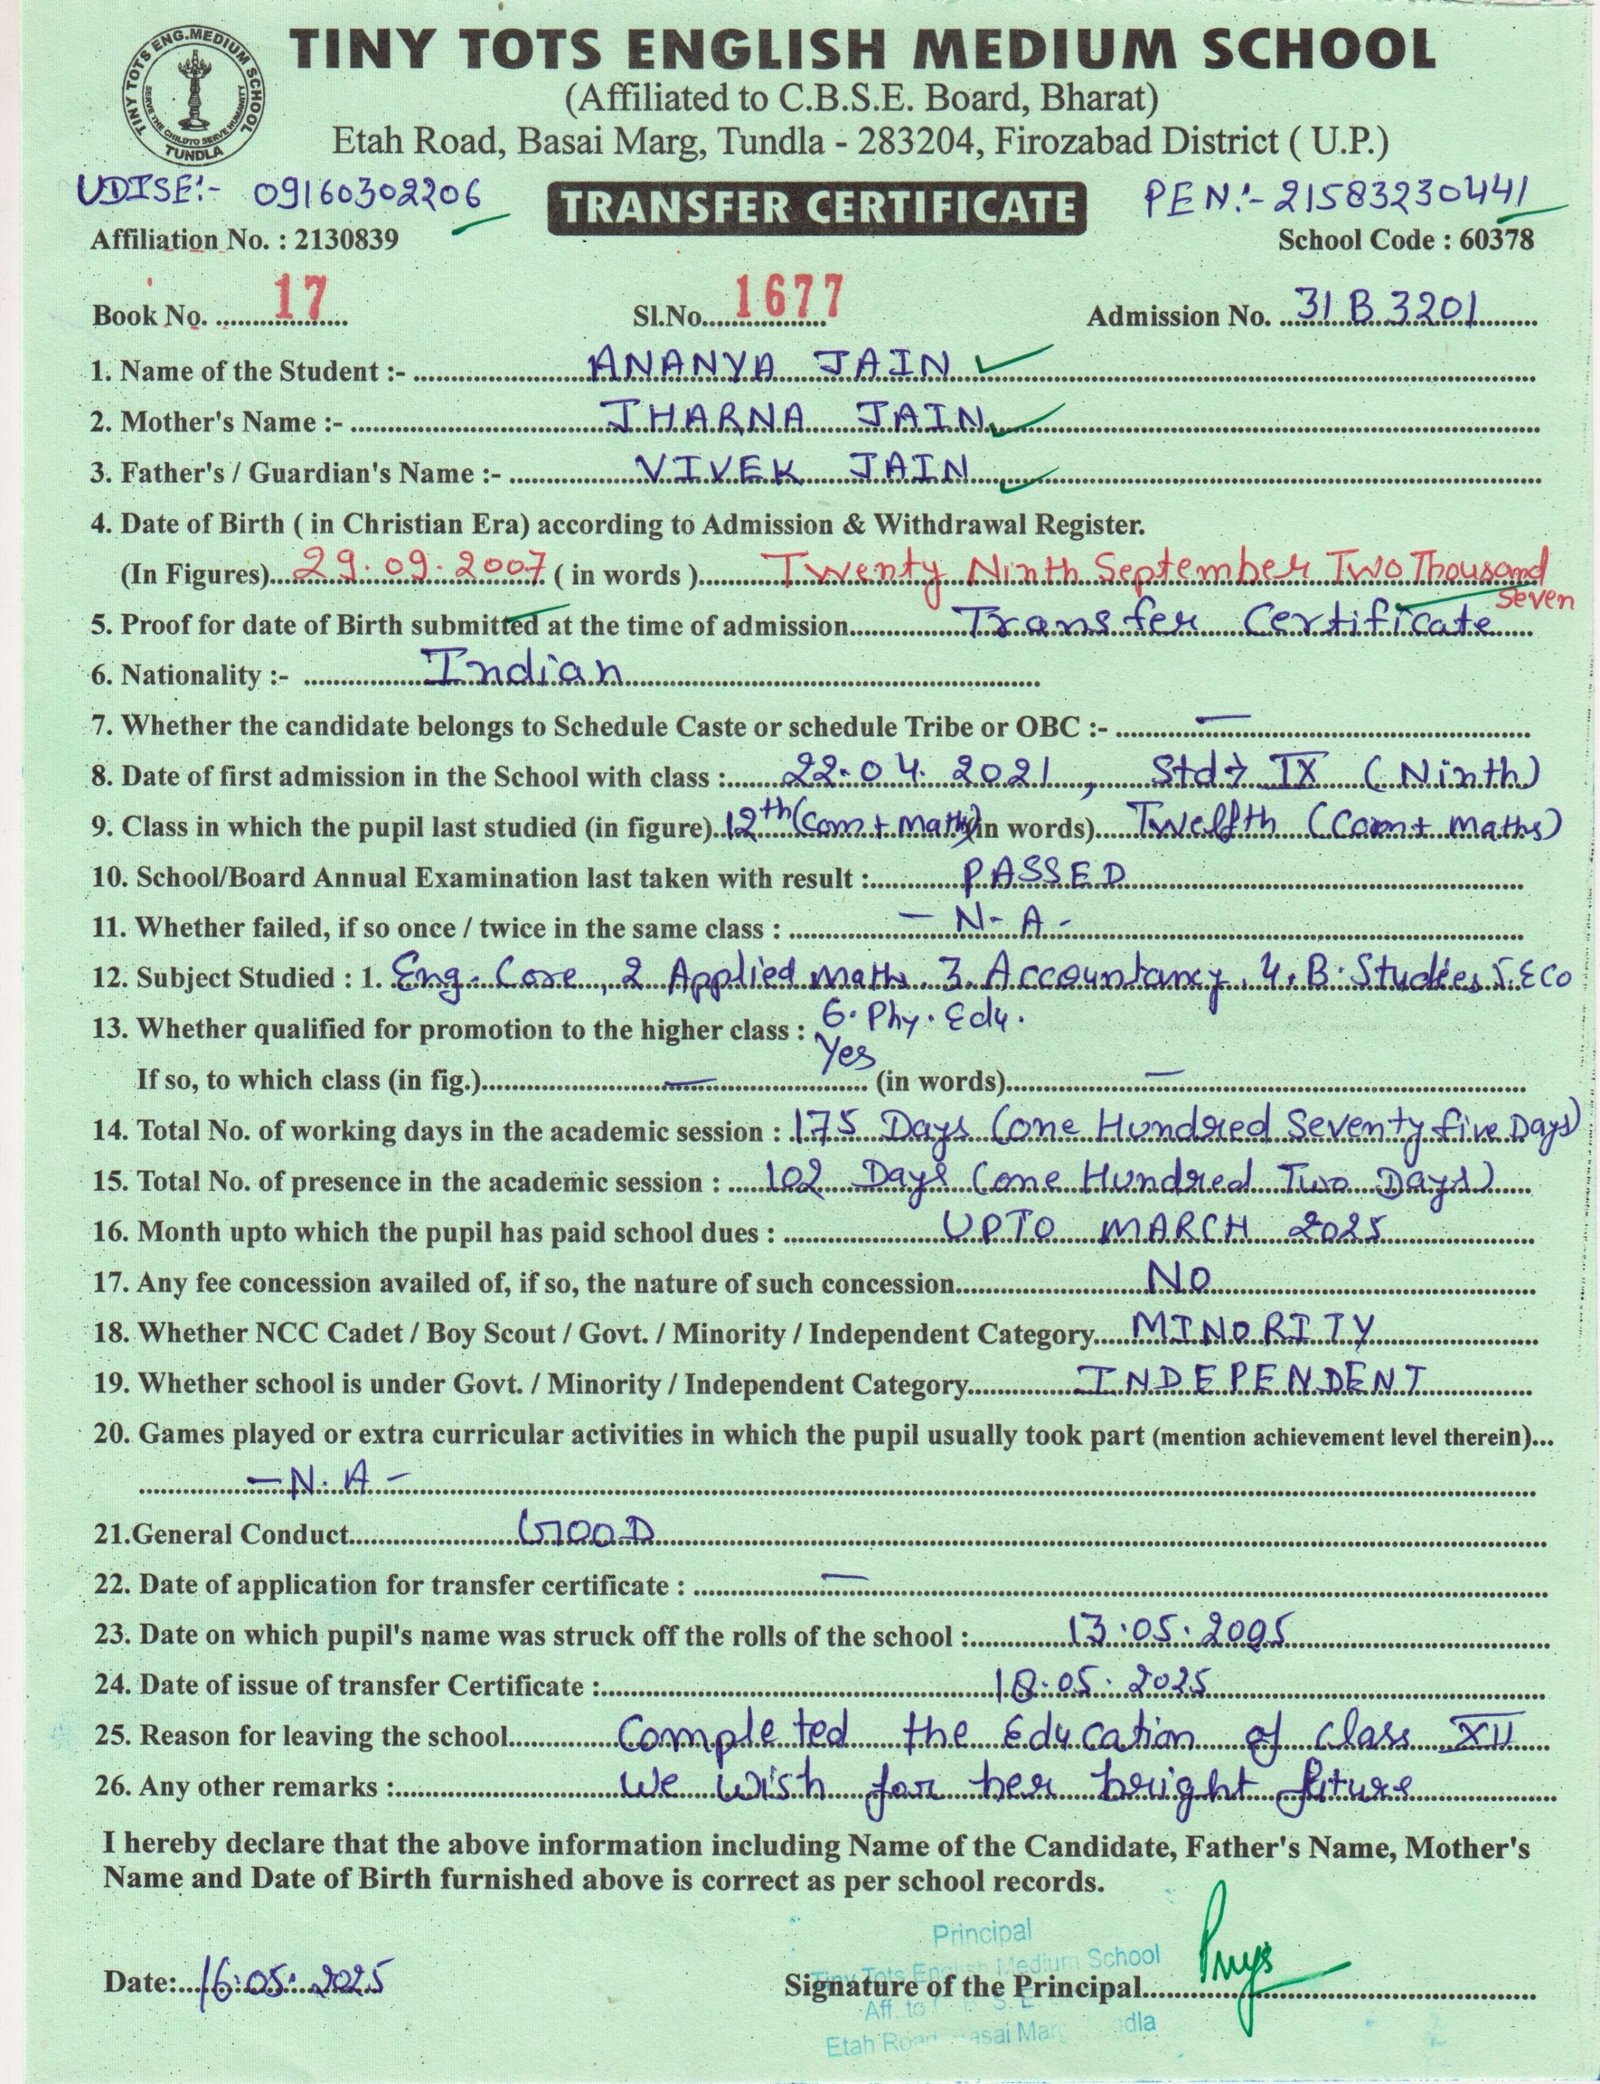 TINY TOTS ENG.MEDIUM SCHOOL
SERVE THE CHILD TO SERVE HUMANITY
TUNDLA
TINY TOTS ENGLISH MEDIUM SCHOOL
(Affiliated to C.B.S.E. Board, Bharat)
Etah Road, Basai Marg, Tundla - 283204, Firozabad District ( U.P.)
UDISE:- 09160302206 TRANSFER CERTIFICATE PEN:- 21583230441
Affiliation No. : 2130839 School Code : 60378
Book No. 17 Sl.No. 1677 Admission No. 31 B 3201
1. Name of the Student :- ANANYA JAIN
2. Mother's Name :- JHARNA JAIN
3. Father's / Guardian's Name :- VIVEK JAIN
4. Date of Birth ( in Christian Era) according to Admission & Withdrawal Register.
(In Figures) 29.09.2007 ( in words ) Twenty Ninth September Two Thousand
Seven
5. Proof for date of Birth submitted at the time of admission Transfer Certificate
6. Nationality :- Indian
7. Whether the candidate belongs to Schedule Caste or schedule Tribe or OBC :- —
8. Date of first admission in the School with class : 22.04.2021, Std→ IX (Ninth)
9. Class in which the pupil last studied (in figure) 12th (Com + Maths) (in words) Twelfth (Com + Maths)
10. School/Board Annual Examination last taken with result : PASSED
11. Whether failed, if so once / twice in the same class : - N-A-
12. Subject Studied : 1. Eng. Core, 2 Applied Maths. 3. Accountancy, 4. B. Studies 5. ECO
6. Phy. Edu.
13. Whether qualified for promotion to the higher class : Yes
If so, to which class (in fig.) — (in words) —
14. Total No. of working days in the academic session : 175 Days (One Hundred Seventy five Days)
15. Total No. of presence in the academic session : 102 Days (One Hundred Two Days)
16. Month upto which the pupil has paid school dues : UPTO MARCH 2025
17. Any fee concession availed of, if so, the nature of such concession NO
18. Whether NCC Cadet / Boy Scout / Govt. / Minority / Independent Category MINORITY
19. Whether school is under Govt. / Minority / Independent Category INDEPENDENT
20. Games played or extra curricular activities in which the pupil usually took part (mention achievement level therein)...
-N.A-
21.General Conduct GOOD
22. Date of application for transfer certificate : —
23. Date on which pupil's name was struck off the rolls of the school : 13.05.
24. Date of issue of transfer Certificate : .05.2025
25. Reason for leaving the school Completed the Education of class XII
26. Any other remarks : We wish for her bright future
I hereby declare that the above information including Name of the Candidate, Father's Name, Mother's
Name and Date of Birth furnished above is correct as per school records.
Principal
Tiny Tots English Medium School
Date: 16.05.2025 Signature of the Principal
Aff. to
Etah Road Basai Marg